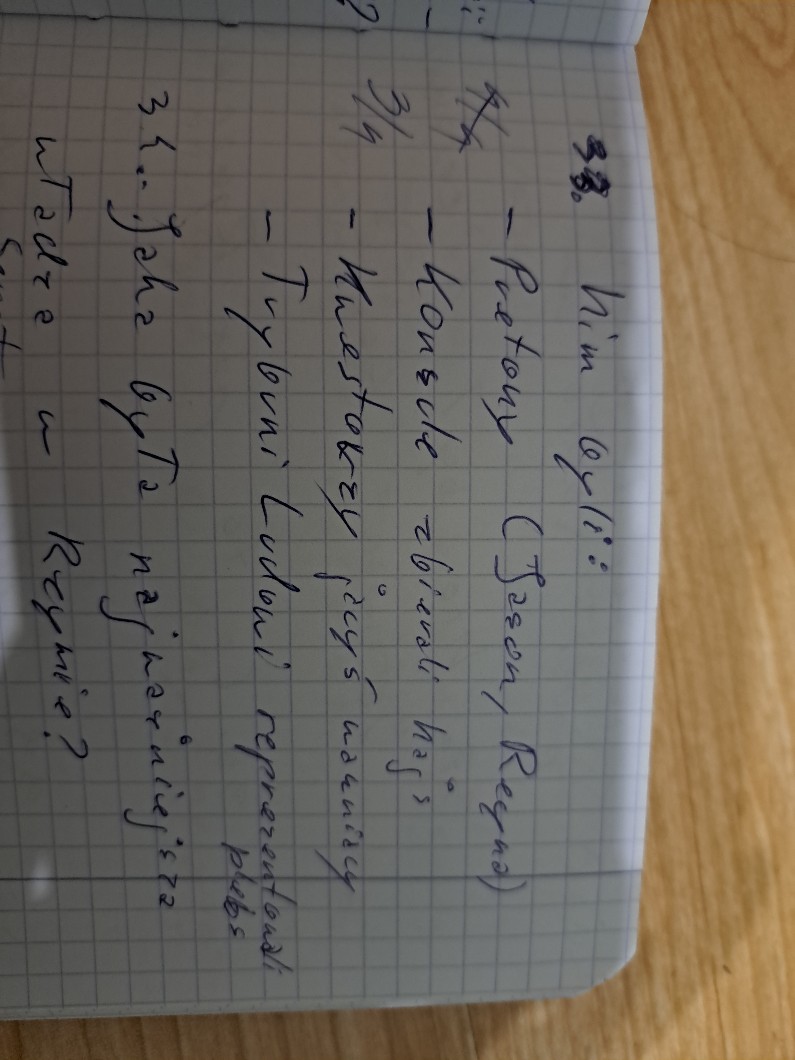 33. Kim byli:
- Pretorzy (Jason, Reyna)
4/4 - Konsule zbierali hajs
3/4 - Kwestorzy jacyś ważniacy
- Trybuni Ludowi reprezentowali plebs
34. Jaka była najważniejsza
władza w Rzymie?